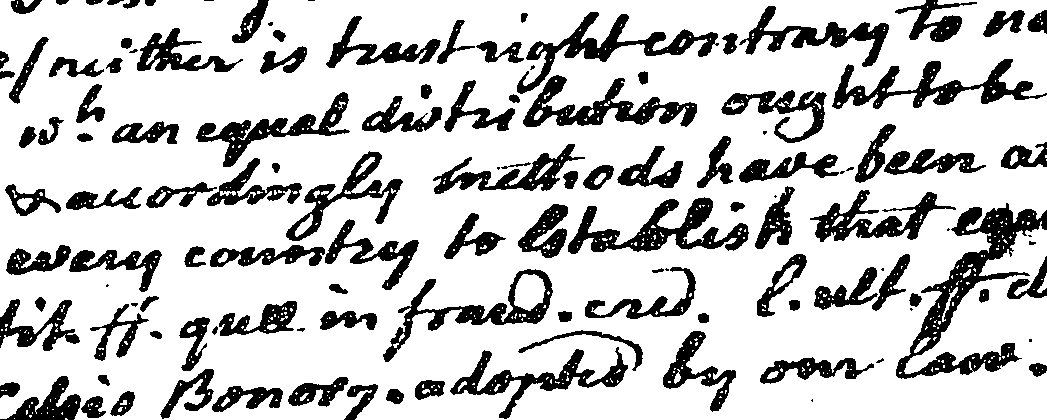 neither is trust right contrary to
wh. an equal distribution ought to be
& accordingly methods have been
every country to Establish that
tit. ff. quæ in fraud. cred. l. ult. ff.
Bonor. adopted by our law.